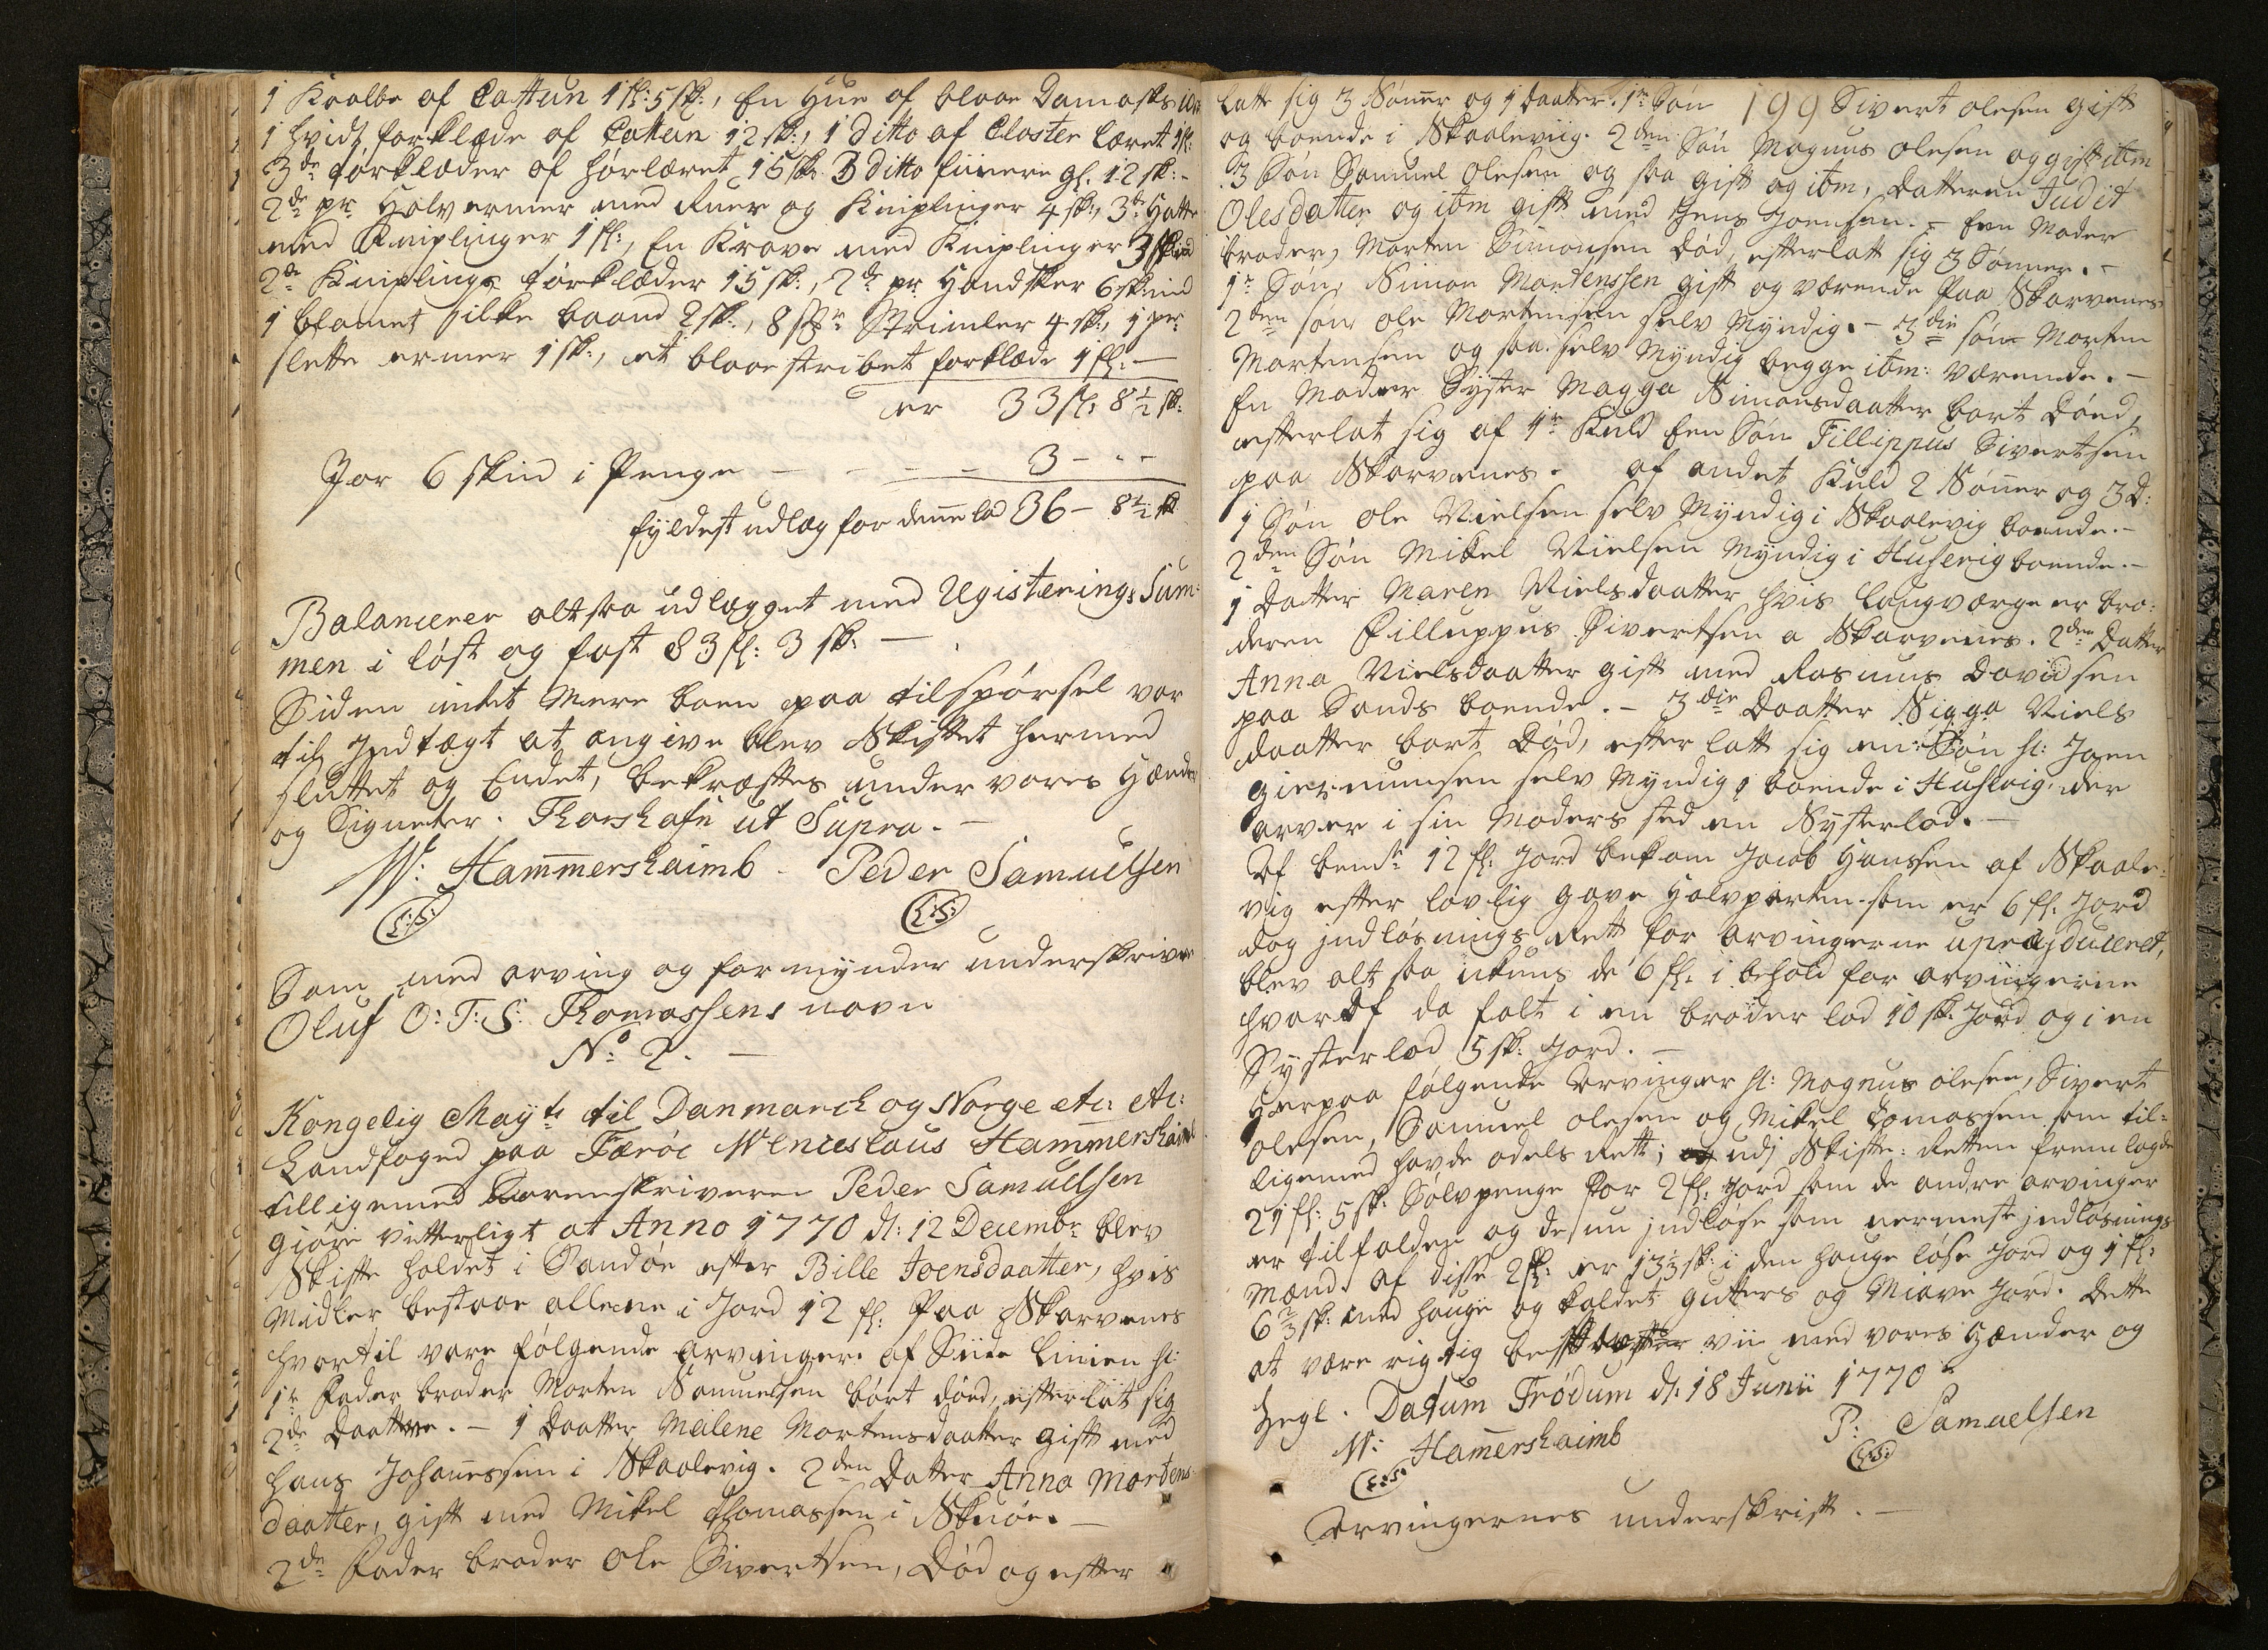 1 Kraolbe af Cattun 1 fl: 5 sk:, En Hue af blaae Damask
1 hvidt forklæde af Cattun 12 sk:, 1 ditto af Closter læret 1 fl:
3de forklæder af hørlæret 15 sk: 3 ditto fiinere gl. 12 sk: -
2de pr Halvermer med Ruer og Kniplinger 4 sk:, 3de Hatte
med Kniplinger 1 fl:, En Krave med Kniplinger 3 skind
2de Kniplings forklæder 15 sk:, 2de pr Handsker 6 sk: ind
1 blamet silke baand 2 sk:, 8 Strimler 4 sk:, 1 par
slette ermer 1 sk:, et blaae stribet forklæde 1 fl: -
er 33 fl: 8½ sk:
For 6 skind i Penge - - - - 3 - - -
fyldest udlæg for denne lod 36 - 8½ sk
Balancerer altsaa udlægget med Registerings Sum-
men i løst og fast 83 fl: 3 sk: -
Siden intet mere boen paa tilspørsel var
til Indtægt at angive blev Skiftet hermed
sluttet og Endet, bekræftes under vores Hænder
og Signeter. Thorshafn ut Supra. -
W: Hammershaimb - Peder Samuelsen
(L:S:) (L:S:)
Som med arving og formynder underskriver
Oluf O: T: S: Thomassens navn
No 2. -
Kongelig Mayts til Danmarck og Norge etc: etc:
Landfoged paa Færöe Wenceslaus Hammershaimb
tilligemed Sorenskriveren Peder Samuelsen
giøre vitterligt at Anno 1770 d: 12 Decembr blev
Skifte holdet i Sandöe efter Bille Joensdaatter, hvis
Midler bestaae allene i Jord 12 fl: Paa Skarvenes
hvortil vare følgende Arvinger. af Siide Linien sl:
1te Fader broder Morten Samuelsen bort død, efterlat sig
2de Daattre. - 1 Daatter Malene Mortensdaatter gift med
Hans Johannessen i Skaalevig. 2den Datter Anna Mortens-
daatter, gift med Mikel Thomassen i Skuöe. -
2de Fader broder Ole Sivertsen, Død og efter
latt sig 3 Sønner og 1 Daatter. 1te Søn 199 Sivert olesen gift
og boende i Skaaleviig. 2den Søn Magnus olesen og gift ibm
3 Søn Samuel Olesen og saa gift og ibm, Datteren Judit
Olesdatter og ibm gift med Jens Joensen. - Een Moder
broder, Morten Simonsen Død, efterlatt sig 3 Sønner. -
1te Søn, Simon Mortenssen gift og værende Paa Skarvenes
2den søn ole Mortensen selv Myndig. - 3die søn Morten
Martensen og saa selv Myndig begge ibm: værende. -
En Moder Syster Magga Simonsdaatter bort Dóed,
efterlat sig af 1te Kuld Een Søn Fillippus Sivertsen
paa Skarvenes. af andet Kuld 2 Sønner og 3 D:
1 Søn ole Nielsen selv Myndig i Skaalevig boende. -
2den Søn Mikel Nielsen Myndig i Husevig boende. -
1 Datter Maren Nielsdaatter hvis Laugværge er bro-
deren Filluppus Sivertsen a Skarvenes. 2den Datter
Anna Nielsdaatter gift med Rasmus Davidsen
paa Sands boende. - 3die Daatter Sigga Niels
daatter bort Død, efterlatt sig en Søn sl: Joen
Giermunsen selv Myndig, boende i Husevig, der
arver i sin Moders sted en Systerlod. -
Af bemte 12 fl: Jord bekom Jacob Hanssen af Skaale-
vig efter lovlig gave Halvparten som er 6 fl: Jord
dog indløsnings Rett for arvingerne upræjduceret,
blev alt saa ikuns de 6 fl: i behold for arvingerne
hvoraf da falt i en broder lod 10 sk: Jord og i en
Systerlod 5 sk: Jord. -
Herpaa følgende Arvinger sl: Magnus olesen, Sivert
olesen, Samuel olesen og Mikel Tomassen som til-
ligemed havde odels Rett; udj Skifte: Retten fremlagde
21 fl: 5 sk: Sølvpenge for 2 fl: Jord som de andre arvinger
er tilfalden og de nu indløse som nermeste indløsnings
Mænd. af disse 2 fl: er 13⅓ sk: i den hauge løse Jord og 1 fl:
6⅔ sk: med hauge og kaldet gutters og Miave Jord. Dette
at være rigtig bekræfter vii med vores Hænder og
Segl. Datum Frødum d: 18 Junii 1770
W: Hamershaimb P: Samuelsen
(L:S:) (L:S:)
Arvingernes underskrift. -